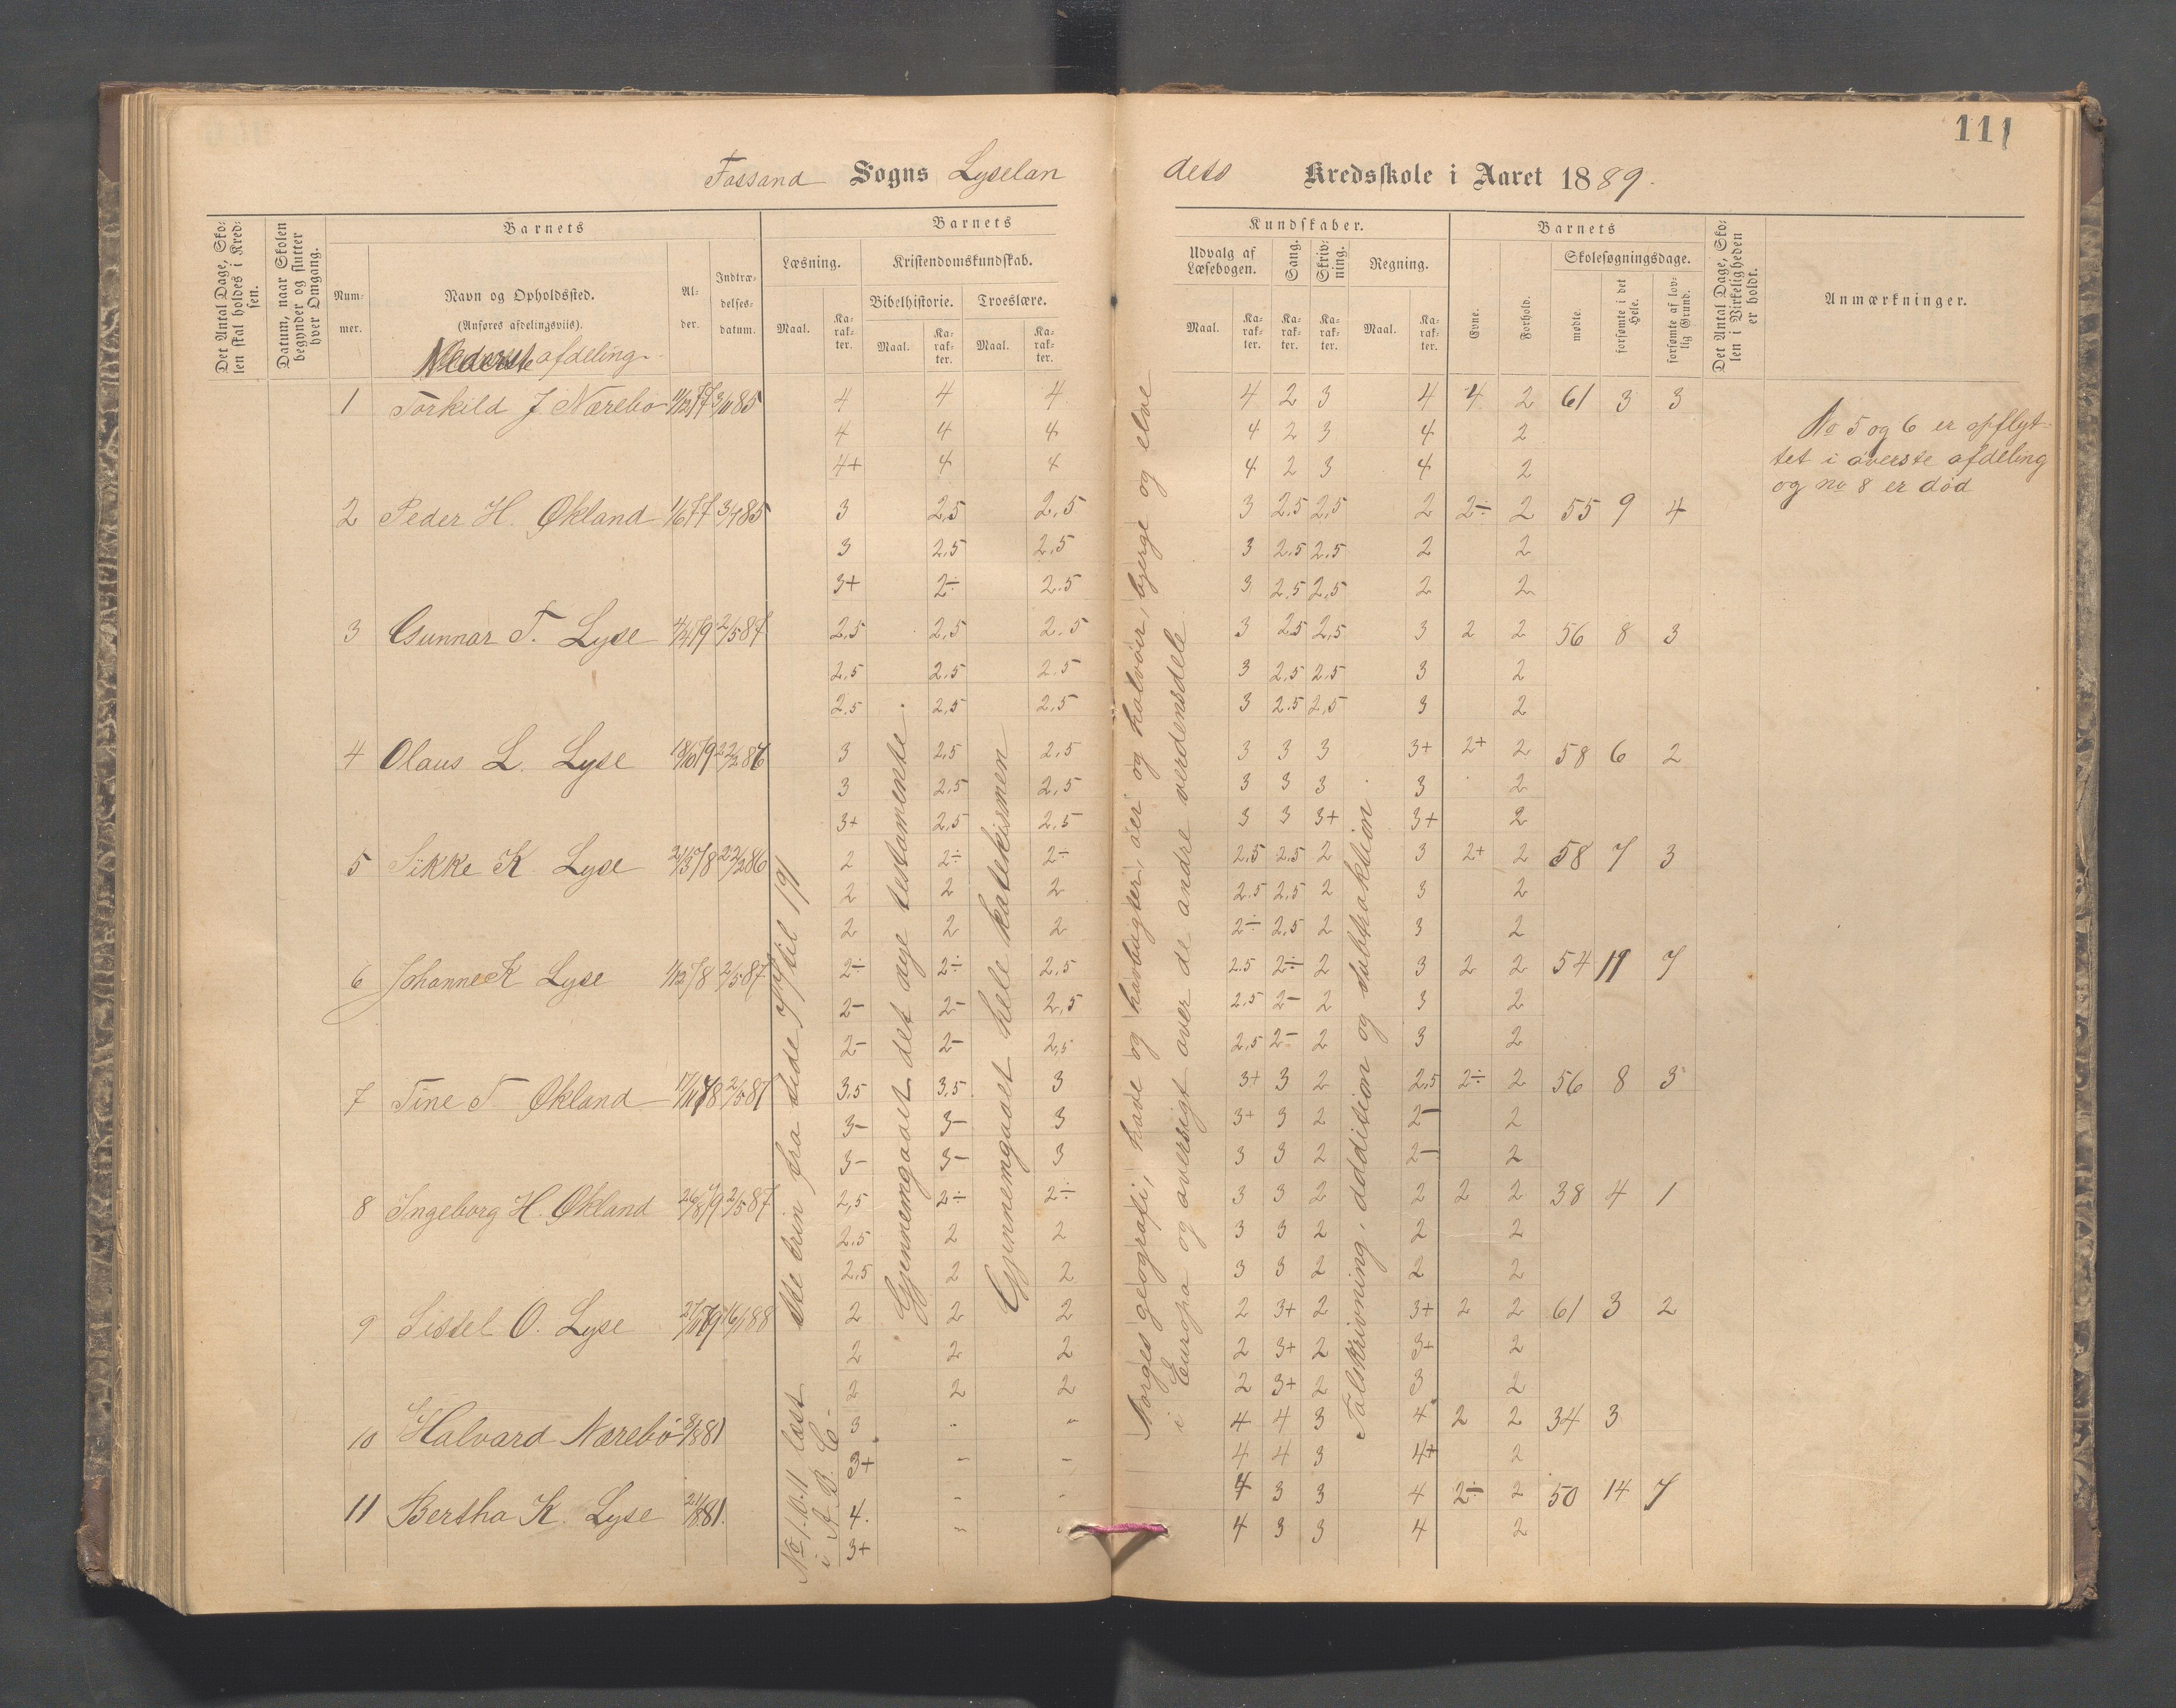 111
Fossand Sogns Lyselan
dets Kredsskole i Aaret 1889.
Det Antal Dage, Sko-
len skal holdes i Kred-
sen.
Datum, naar Skolen
begynder og slutter
hver Omgang.
Barnets
Num-
mer.
Navn og Opholdssted.
(Anføres afdelingsviis).
Al-
der.
Indtræ-
delses-
datum.
Barnets
Læsning.
Kristendomskundskab.
Bibelhistorie.
Troeslære.
Maal.
Ka-
rak-
ter.
Maal.
Ka-
rak-
ter.
Maal.
Ka-
rak-
ter.
Kundskaber.
Udvalg af
Læsebogen.
Sang.
Skriv-
ning.
Regning.
Maal.
Ka-
rak-
ter.
Ka-
rak-
ter.
Ka-
rak-
ter.
Maal.
Ka-
rak-
ter.
Barnets
Evne.
Forhold.
Skolesøgningsdage.
mødte.
forsømte i det
Hele.
forsømte af lov-
lig Grund.
Det Antal Dage, Sko-
len i Virkeligheden
er holdt.
Anmærkninger.
Nederste afdeling
1 Torkild J Nærebø 11/12 77 3/11 85 4 4 4 4 2 3 4 4 2 61 3 3
4 4 4 4 2 3 4 2
4+ 4 4 4 2 3 4 2
2 Peder H. Økland 1/6 77 85 3 2,5 2,5 3 2,5 2,5 2 2÷ 2 55 9 4
3 2,5 2,5 3 2,5 2,5 2 2
3+ 2÷ 2.5 3 2,5 2,5 2 2
3 Gunnar T. Lyse 4/4 79 2/5 87 2,5 2,5 2.5 3 2,5 2,5 3 2 2 56 8 3
2,5 2.5 2.5 3 2,5 2,5 3 2
2,5 2,5 2,5 3 2.5 2,5 3 2
4 Olaus L. Lyse 18/10 79 22/2 86 3 2,5 2,5 3 3 3 3+ 2+ 2 58 6 2
3 2,5 2,5 3 3 3 3 2
3+ 2,5 2,5 3 3 3+ 3+ 2
5 Sikke K Lyse 21/3 78 22/2 86 2 2÷ 2÷ 2,5 2,5 2 3 2+ 2 58 7 3
2 2 2 2.5 2,5 2 3 2
2 2 2 2÷ 2,5 2 3 2
6 Johanne K Lyse 1/12 78 2/5 87 2÷ 2÷ 2,5 2.5 2÷ 2 3 2 2 54 19 7
2- 2- 2,5 2,5 2- 2 3 2
2- 2- 2,5 2,5 2- 2 3 2
7 Tine T Økland 17/11 78 2/5 87 3,5 3,5 3 3+ 3 2 2,5 2÷ 2 56 8 3
3- 3- 3 3+ 3 2 2- 2
3- 3- 3 3 3 2 2- 2
8 Ingeborg H. Økland 26/8 79 2/5 87 2,5 2÷ 2÷ 3 3 2 2 2 2 38 4 1
2.5 2 2 3 3 2 2 2
2,5 2 2 3 3 2 2 2
9 Sissel O. Lyse 27/10 79 16/1 88 2 2 2 2 3+ 2 3+ 2 2 61 3 2
2 2 2 2 3+ 2 3+ 2
2 2 2 2 3+ 2 3 2
10 Halvard Nærebø 9/8 81 3 " " 4 4 3 4 2 2 34 3
3+ - - 4 4 3 4+ 2
11 Bertha K. Lyse 21/8 81. 4. - - 4 3 3 4 2÷ 2 50 14 7
3+ " 4 3 3 4 2
8de trin fra side 77 til 191
No 1.10.11 læst
i A B C
Gjennemgaaet det nye testamente.
Gjennemgaaet hele katekismen
Norges geografi, have og havbugter, øer og halvøer, bjerge og elve
i Europa og oversigt over de andre verdensdele
Talskrivning, addition og subtraktion.
No 5 og 6 er opflyt-
tet i øverste afdeling
og no 8 er død